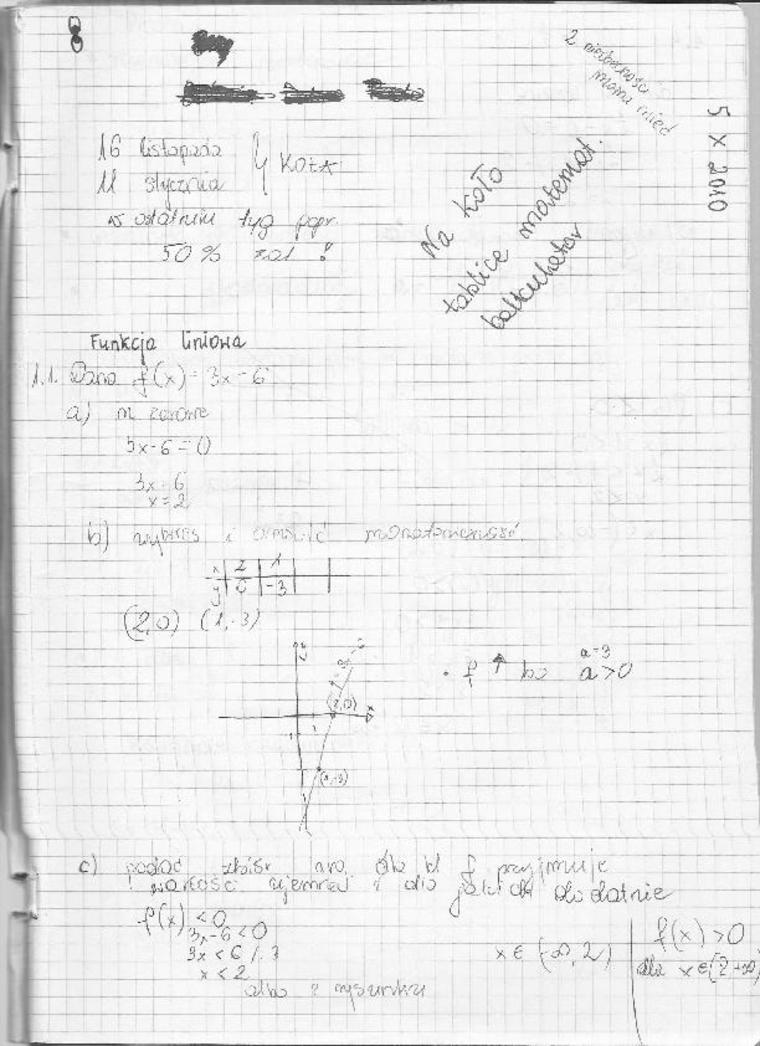 8
2 nieobecności
można mieć
5 X 2010
16 listopada
11 stycznia
} KOŁA
w ostatnim tyg popr.
50% zal !
Na koło
tablice matemat.
kalkulator
Funkcja liniowa
1.1. Dana f(x) = 3x - 6
a) m zerowe
3x - 6 = 0
3x = 6
x = 2
b) wykres i monotoniczność.
x | 2 | 1
y | 0 | -3
(2,0) (1,-3)
y
x
(2,0)
(1,-3)
a=3
f ↑ bo a>0
c) podać zbiór arg. dla kt f przyjmuje
wartości ujemne i dla jakich dodatnie
f(x) < 0
3x - 6 < 0
3x < 6 /:3
x < 2
x ∈ (-∞, 2)
f(x) > 0
dla x ∈ (2 +∞)
albo z rysunku